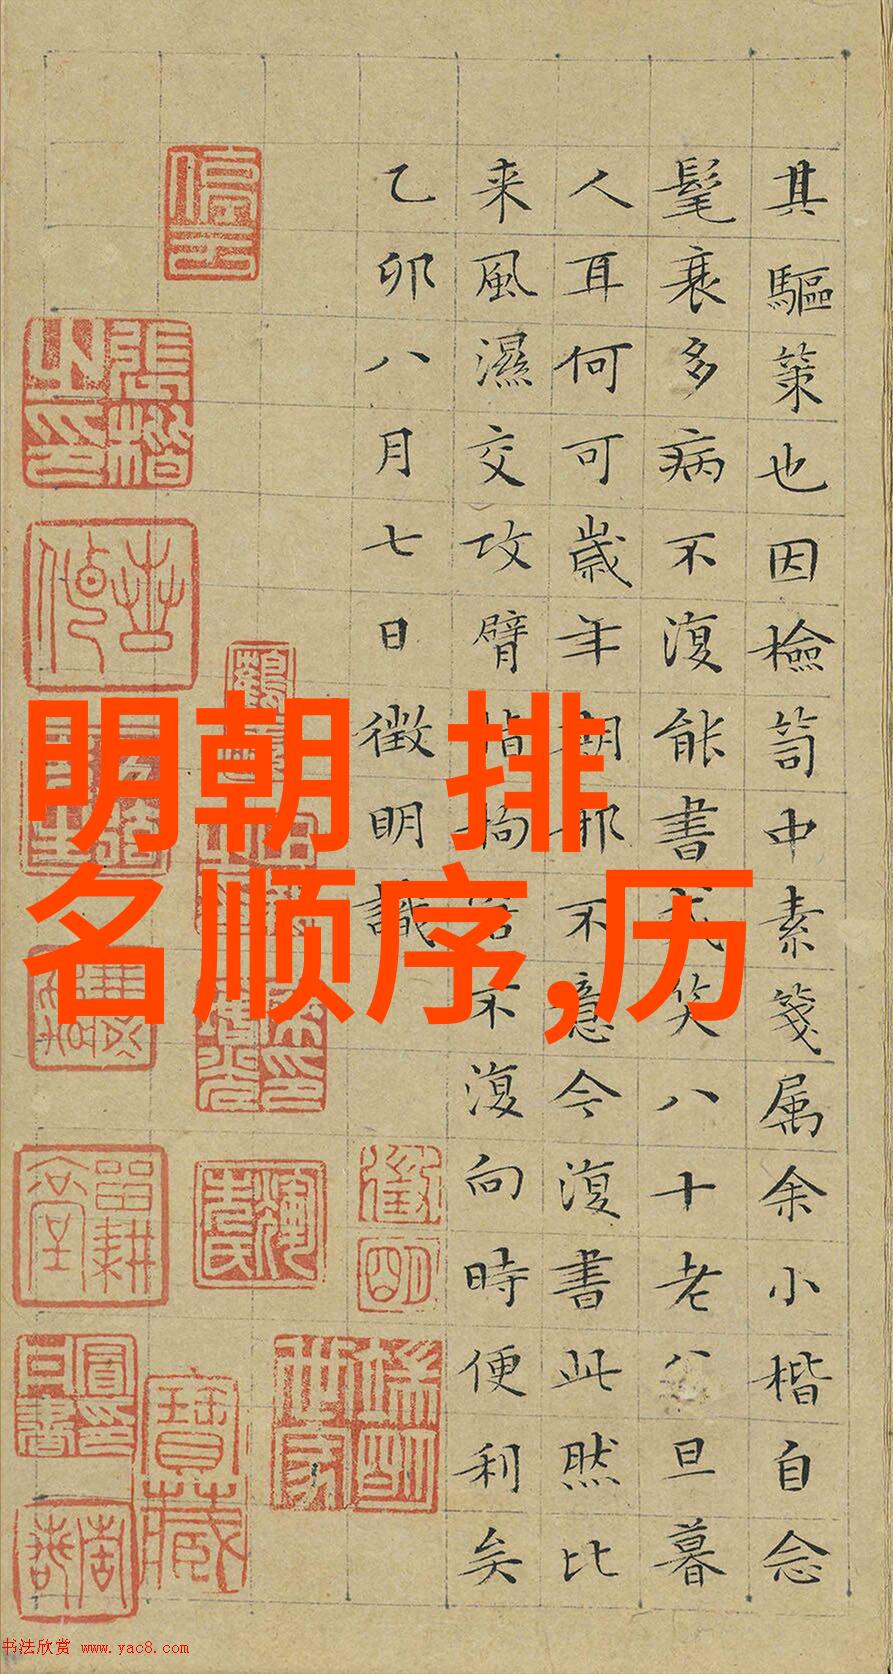 其驅策也因檢笥中素箋属余小楷自念
髦衰多病不復能書笑八十老旦暮
人耳何可歲年邪不意今復書此然比
来風濕交攻臂指拘不復向時便利矣
乙卯八月七日徵明識
停雲
張楷之印
徵明
寶藏
明朝 排
名顺序,历
书法欣赏 www.yac8.com